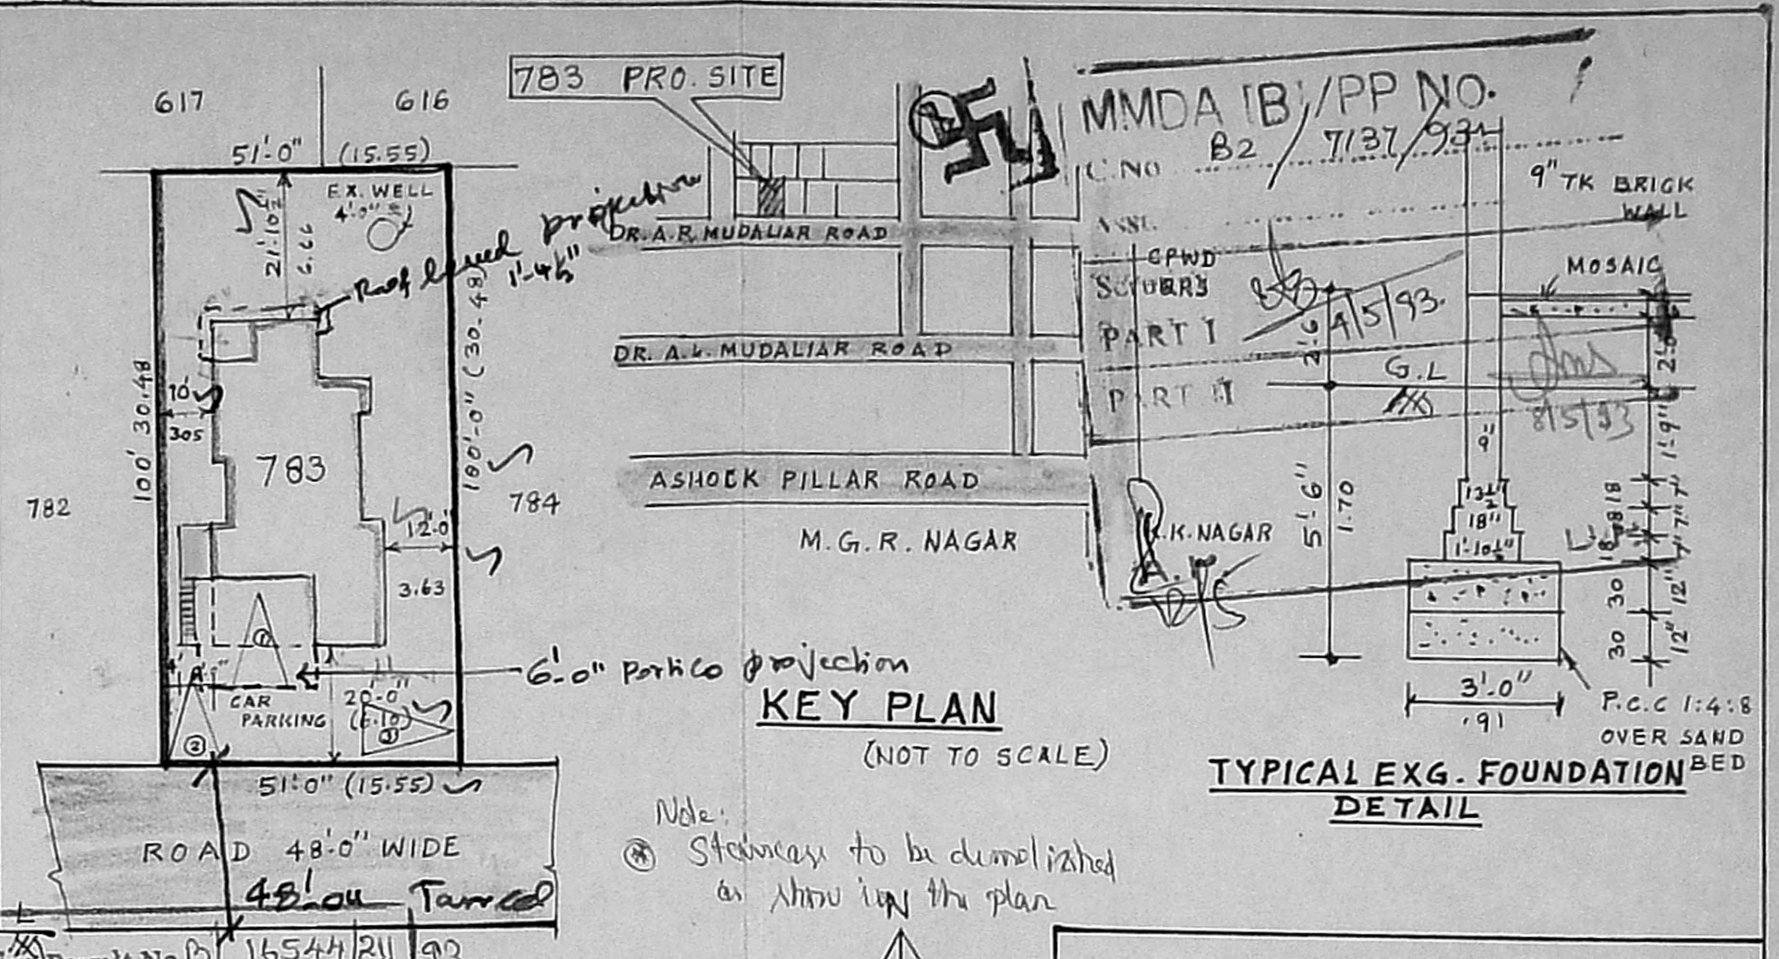 617
616
51'-0" (15.55)
21'-10½"
6.66
EX. WELL
4'-0"
Roof level projection
1'-4½"
100' 30.48
100'-0" (30.48)
10'
305
783
782
784
12'-0"
3.63
①
CAR
PARKING
②
20'-0"
(6.10)
6'-0" Portico projection
51'-0" (15.55)
ROAD 48'-0" WIDE
48'-0" Tarred
16544/211/93
783 PRO. SITE
DR. A.R. MUDALIAR ROAD
DR. A.L. MUDALIAR ROAD
ASHOCK PILLAR ROAD
M.G.R. NAGAR
K.K. NAGAR
KEY PLAN
(NOT TO SCALE)
Note:
Staircase to be demolished
as show in the plan
MMDA [B]/PP NO.
C.NO B2/7137/93
CPWD
PART I
4/5/93.
PART II
8/5/93
9" TK BRICK
WALL
MOSAIC
2'-6"
G.L
9"
1'-9"
5'-6"
1.70
13½
18"
1'-10½"
18 18 18
7" 7" 7"
30 12"
30 12"
3'-0"
.91
P.C.C 1:4:8
OVER SAND
BED
TYPICAL EXG. FOUNDATION
DETAIL